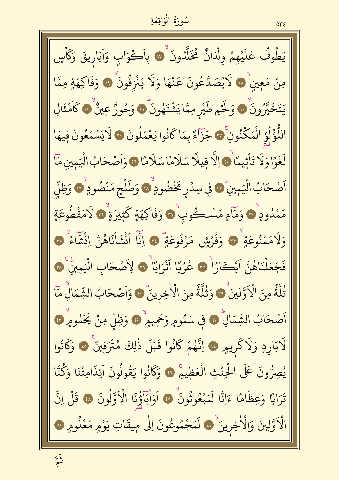 سُورَةُ الْوَاقِعَةِ
٥٣٤
يَطُوفُ عَلَيْهِمْ وِلْدَانٌ مُخَلَّدُونَۙ ﴿١٧﴾ بِاَكْوَابٍ وَاَبَارٖيقَ وَكَأْسٍ
مِنْ مَعٖينٍۙ ﴿١٨﴾ لَا يُصَدَّعُونَ عَنْهَا وَلَا يُنْزِفُونَۙ ﴿١٩﴾ وَفَاكِهَةٍ مِمَّا
يَتَخَيَّرُونَۙ ﴿٢٠﴾ وَلَحْمِ طَيْرٍ مِمَّا يَشْتَهُونَۜ ﴿٢١﴾ وَحُورٌ عٖينٌۙ ﴿٢٢﴾ كَاَمْثَالِ
اللُّؤْلُؤِ الْمَكْنُونِۚ ﴿٢٣﴾ جَزَٓاءً بِمَا كَانُوا يَعْمَلُونَ ﴿٢٤﴾ لَا يَسْمَعُونَ فٖيهَا
لَغْوًا وَلَا تَأْثٖيمًاۙ ﴿٢٥﴾ اِلَّا قٖيلًا سَلَامًا سَلَامًا ﴿٢٦﴾ وَاَصْحَابُ الْيَمٖينِ مَٓا
اَصْحَابُ الْيَمٖينِۜ ﴿٢٧﴾ فٖي سِدْرٍ مَخْضُودٍۙ ﴿٢٨﴾ وَطَلْحٍ مَنْضُودٍۙ ﴿٢٩﴾ وَظِلٍّ
مَمْدُودٍۙ ﴿٣٠﴾ وَمَٓاءٍ مَسْكُوبٍۙ ﴿٣١﴾ وَفَاكِهَةٍ كَثٖيرَةٍۙ ﴿٣٢﴾ لَا مَقْطُوعَةٍ
وَلَا مَمْنُوعَةٍۙ ﴿٣٣﴾ وَفُرُشٍ مَرْفُوعَةٍۜ ﴿٣٤﴾ اِنَّٓا اَنْشَأْنَاهُنَّ اِنْشَٓاءًۙ ﴿٣٥﴾
فَجَعَلْنَاهُنَّ اَبْكَارًاۙ ﴿٣٦﴾ عُرُبًا اَتْرَابًاۙ ﴿٣٧﴾ لِاَصْحَابِ الْيَمٖينِۜ ﴿٣٨﴾
ثُلَّةٌ مِنَ الْاَوَّلٖينَۙ ﴿٣٩﴾ وَثُلَّةٌ مِنَ الْاٰخِرٖينَۜ ﴿٤٠﴾ وَاَصْحَابُ الشِّمَالِ مَٓا
اَصْحَابُ الشِّمَالِۜ ﴿٤١﴾ فٖي سَمُومٍ وَحَمٖيمٍۙ ﴿٤٢﴾ وَظِلٍّ مِنْ يَحْمُومٍۙ ﴿٤٣﴾
لَا بَارِدٍ وَلَا كَرٖيمٍ ﴿٤٤﴾ اِنَّهُمْ كَانُوا قَبْلَ ذٰلِكَ مُتْرَفٖينَۚ ﴿٤٥﴾ وَكَانُوا
يُصِرُّونَ عَلَى الْحِنْثِ الْعَظٖيمِۚ ﴿٤٦﴾ وَكَانُوا يَقُولُونَ اَئِذَا مِتْنَا وَكُنَّا
تُرَابًا وَعِظَامًا ءَاِنَّا لَمَبْعُوثُونَۙ ﴿٤٧﴾ اَوَاٰبَٓاؤُ۬نَا الْاَوَّلُونَ ﴿٤٨﴾ قُلْ اِنَّ
الْاَوَّلٖينَ وَالْاٰخِرٖينَۙ ﴿٤٩﴾ لَمَجْمُوعُونَ اِلٰى مٖيقَاتِ يَوْمٍ مَعْلُومٍ ﴿٥٠﴾
ثُمَّ